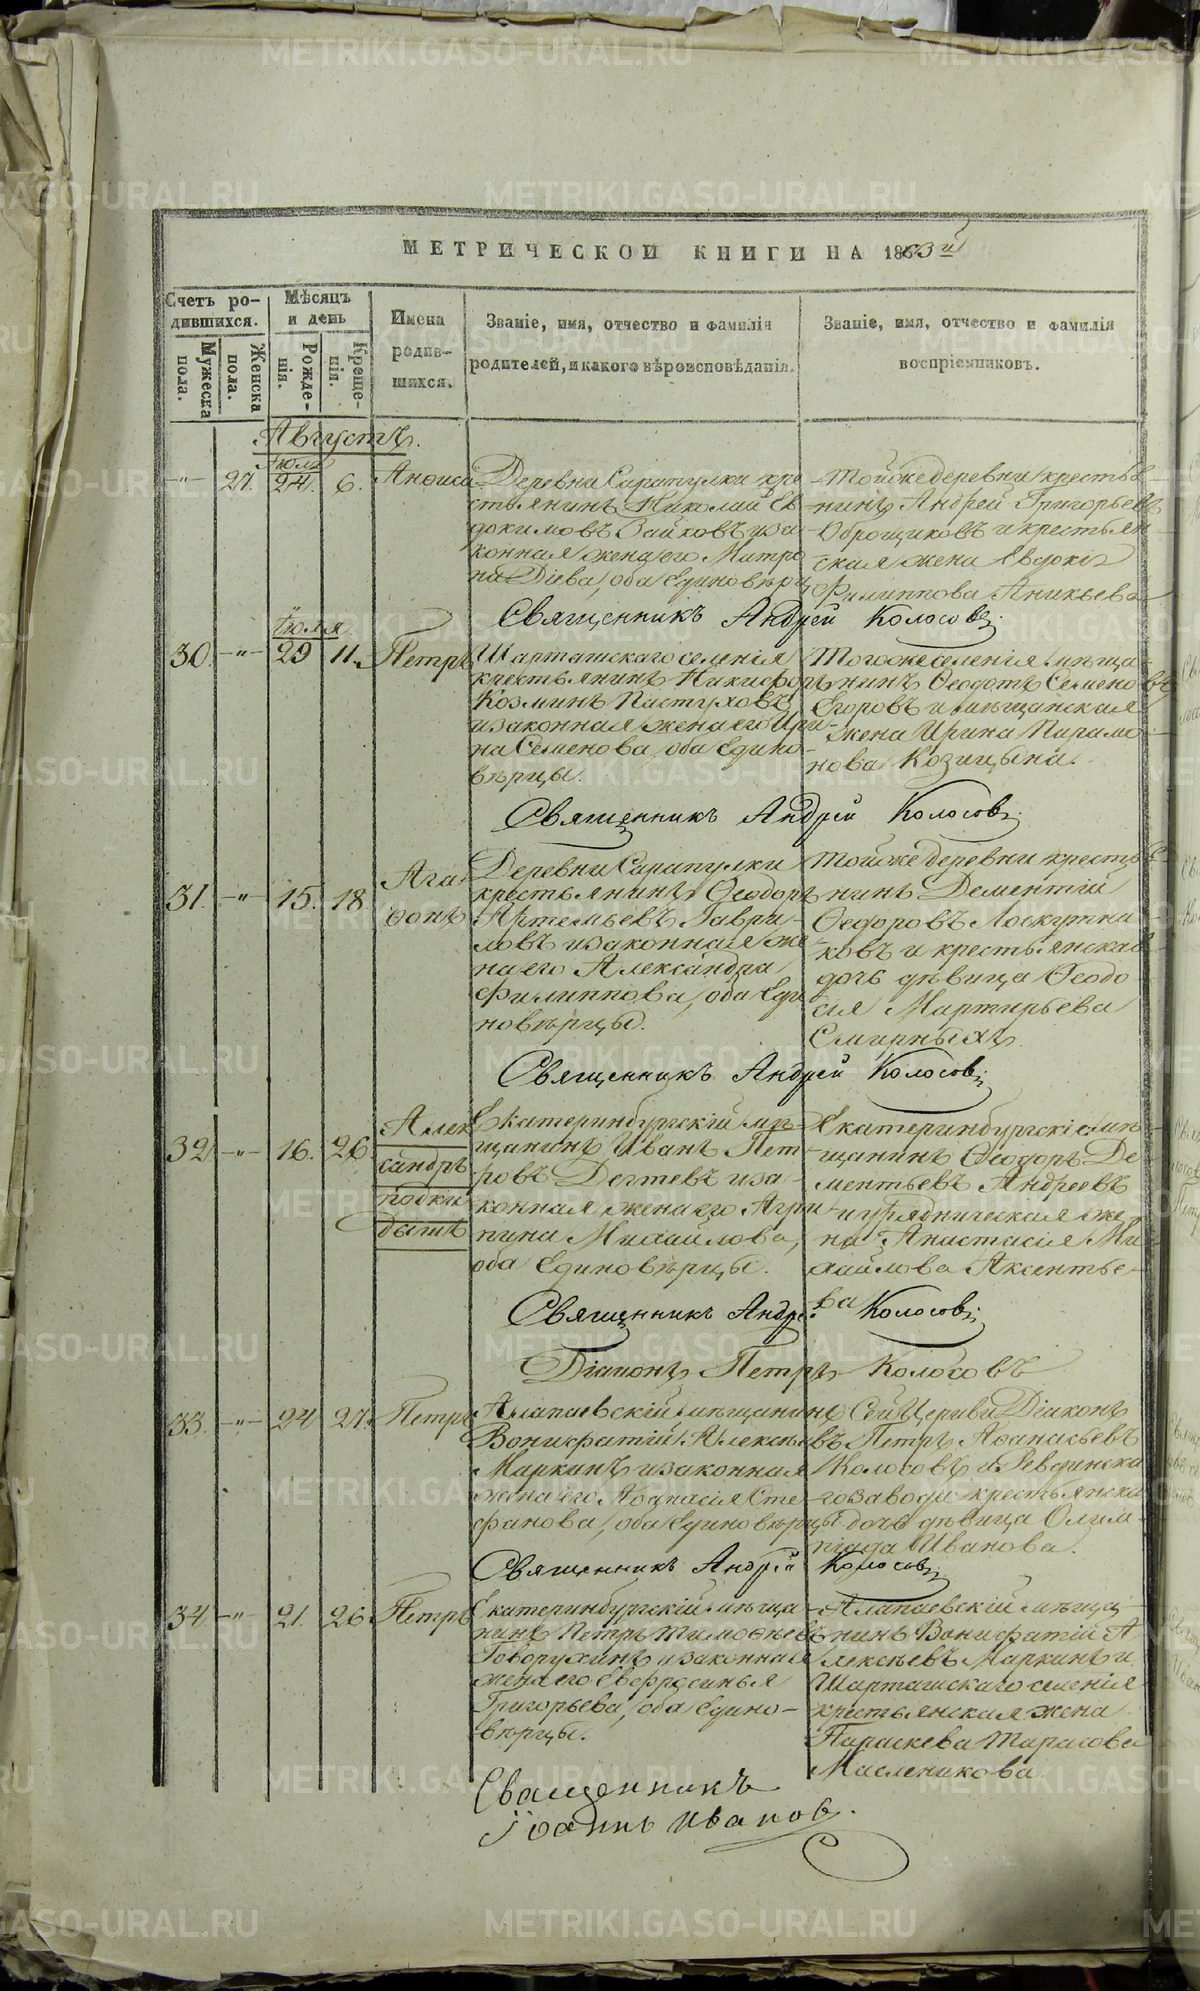 МЕТРИЧЕСКОЙ КНИГИ НА 1863й
Счетъ ро-
дившихся.
Мужеска
пола.
Женска
пола.
Мѣсяцъ
и день
Рожде-
нія.
Креще-
нія.
Имена
родив-
шихся.
Званіе, имя, отчество и фамилія
родителей, и какого вѣроисповѣданія.
Званіе, имя, отчество и фамилія
воспріемниковъ.
Августъ.
Іюля
-"- 27. 24. 6. Анѳиса
Деревни Сарапулки кре
стьянинъ Николай Ев
докимовъ Зайковъ иза
конная жена его Матре
на Діева, оба Единовѣрц
Тойже деревни крестья
нинъ Андрей Григорьевъ
Оброщиковъ и крестьян
ская жена Евдокія
Филиппова Аникьева
Священникъ Андрей Колосовъ.
Іюля
30. -"- 29 11. Петръ
Шарташскаго селенія
крестьянинъ Никифоръ
Козминъ Пастуховъ
изаконная жена его Ири-
на Семенова, оба Едино-
вѣрцы.
Тогоже селенія мѣща-
нинъ Ѳеодотъ Семеновъ
Егоровъ и мѣщанская
жена Ирина Парамо-
нова Козицына.
Священникъ Андрей Колосовъ.
31. -"- 15. 18. Ага-
ѳонъ
Деревни Сарапулки
крестьянинъ Ѳеодоръ
Артемьевъ Гаври-
ловъ изаконная же-
на его Александра
Филиппова, оба Еди
новѣрцы.
Тойже деревни крестья-
нинъ Дементій
Ѳеодоровъ Лоскутни-
ковъ и крестьянская
дочь дѣвица Ѳеодо
сія Мартирьева
Смирныхъ
Священникъ Андрей Колосовъ.
32. -"- 16. 26. Алек
сандръ
подки
дышъ
Екатеринбургскій мѣ-
щанинъ Иванъ Пет-
ровъ Дегтевъ иза-
конная жена его Агри-
пина Михайлова,
оба Единовѣрцы.
Екатеринбургскій мѣ-
щанинъ Ѳеодоръ Де-
ментьевъ Андреевъ
и урядническая же-
на Анастасія Ми
хайлова Аксентье-
ва
Священникъ Андрей Колосовъ.
Діаконъ Петръ Колосовъ
33. -"- 24 27. Петръ
Алапаевскій мѣщанинъ
Вонифатій Алексѣевъ
Маркинъ изаконная
жена его Аѳанасія Сте-
фанова, оба Единовѣрцы.
Сей Церкви Діаконъ
Петръ Аѳанасьевъ
Колосовъ и Ревдинска
го завода крестьянска
дочь дѣвица Олим-
піада Иванова.
Священникъ Андрей Колосовъ
34. -"- 21. 26. Петръ
Екатеринбургскій мѣща
нинъ Петръ Тимоѳеевъ
Говорухинъ изаконная
жена его Евфросинья
Григорьева, оба Едино-
вѣрцы.
Алапаевскій мѣща-
нинъ Вонифатій А
лексѣевъ Маркинъ и
Шарташскаго селенія
крестьянская жена
Параскева Тарасова
Масленикова
Священникъ
Іоаннъ Ивановъ.